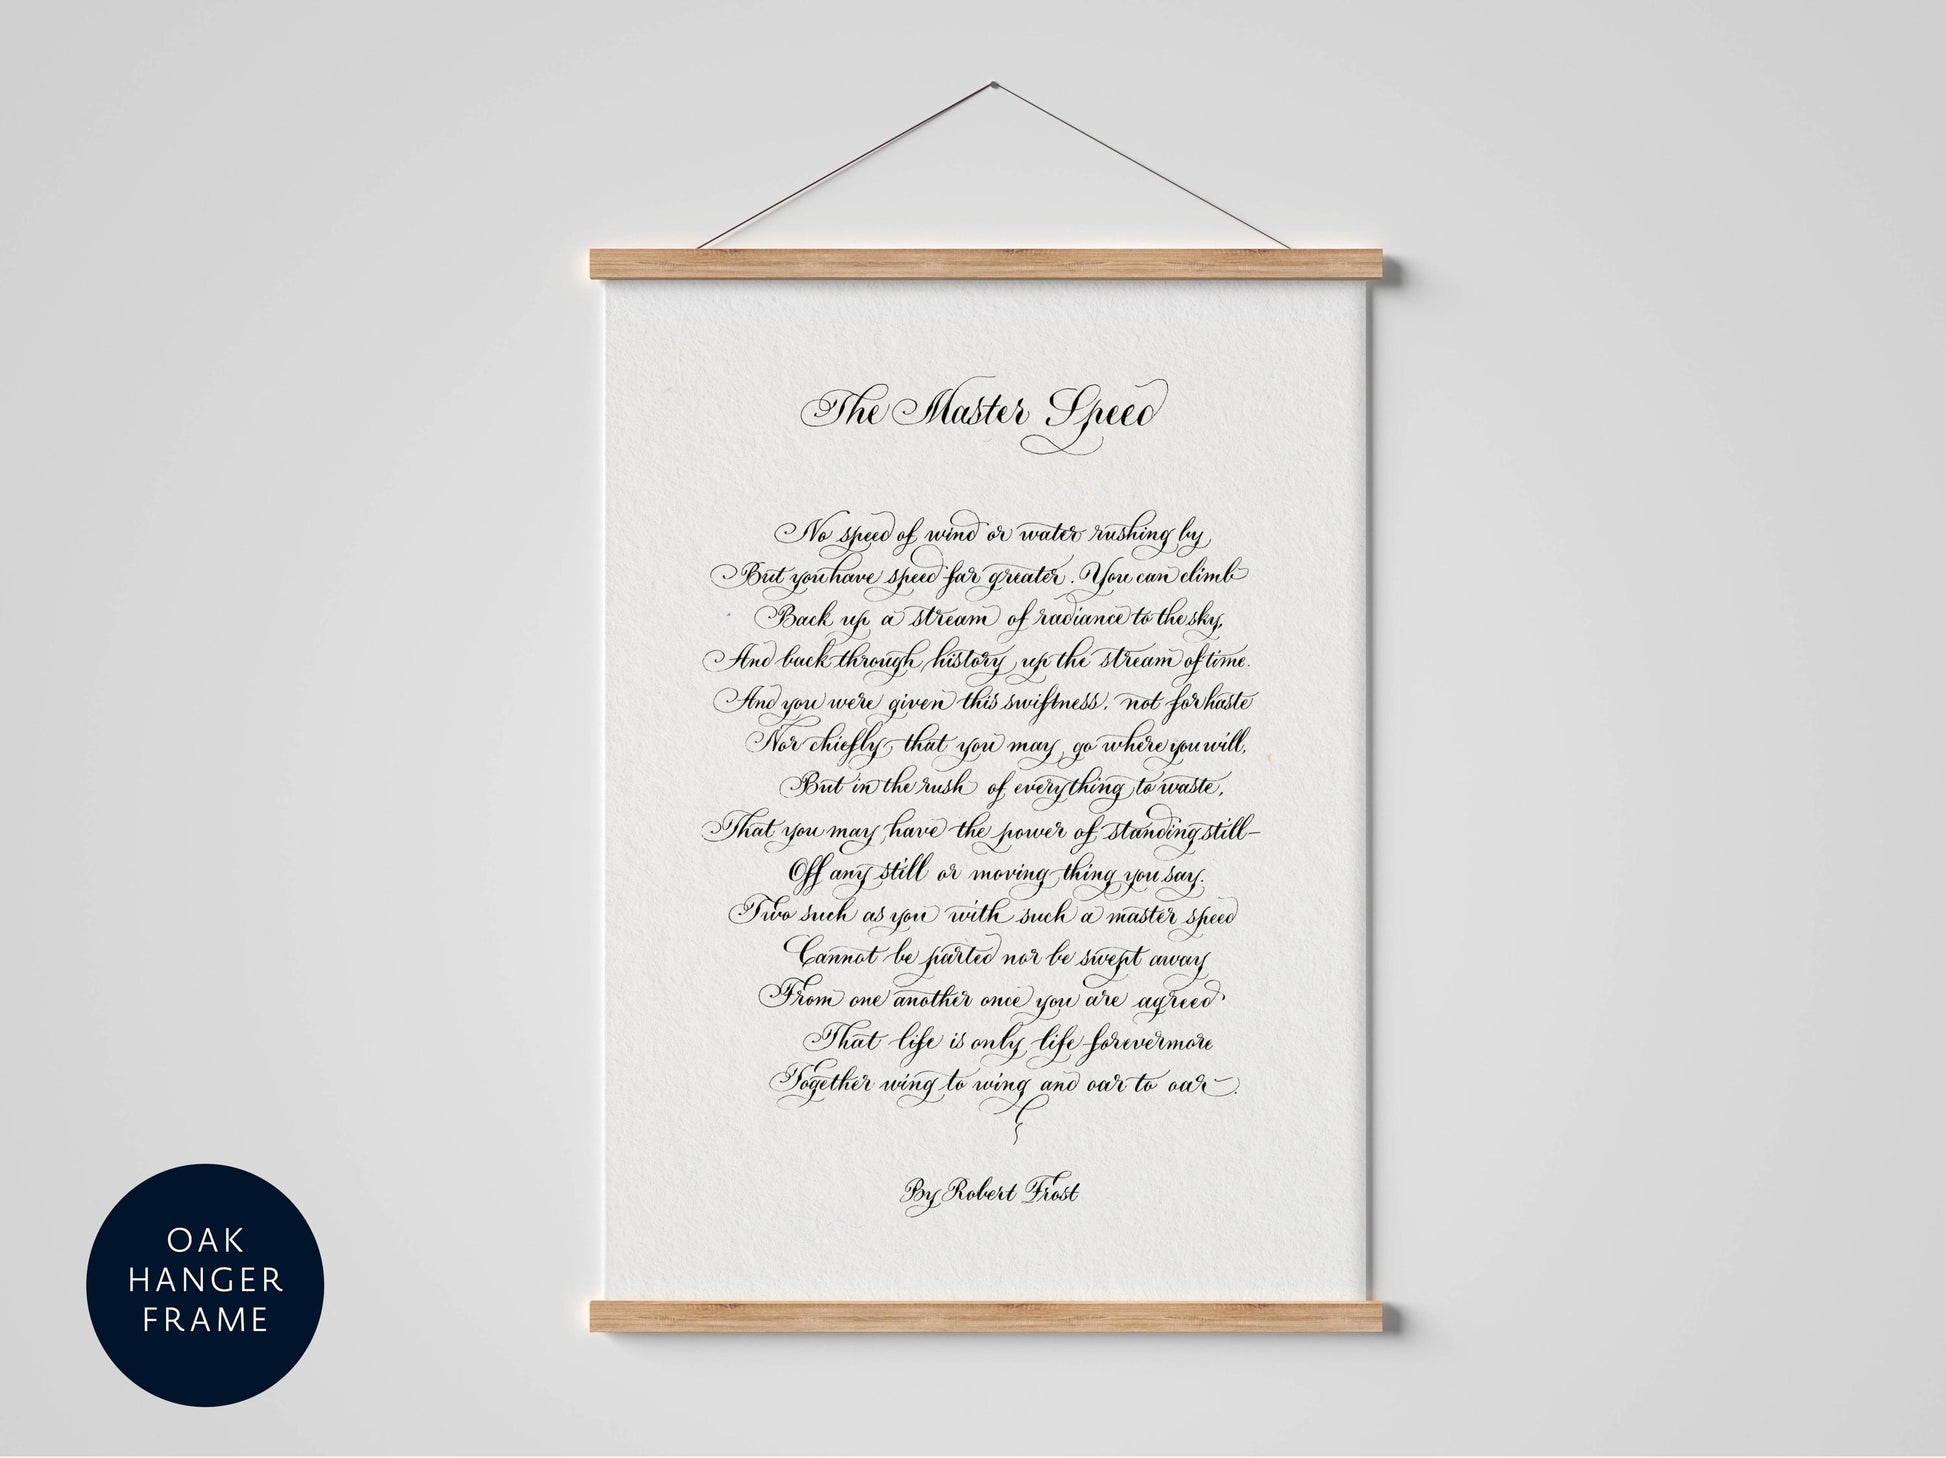 The Master Speed
No speed of wind or water rushing by
But you have speed far greater. You can climb
Back up a stream of radiance to the sky,
And back through history up the stream of time.
And you were given this swiftness, not for haste
Nor chiefly that you may go where you will,
But in the rush of everything to waste,
That you may have the power of standing still—
Off any still or moving thing you say.
Two such as you with such a master speed
Cannot be parted nor be swept away
From one another once you are agreed
That life is only life forevermore
Together wing to wing and oar to oar.
By Robert Frost
OAK
HANGER
FRAME